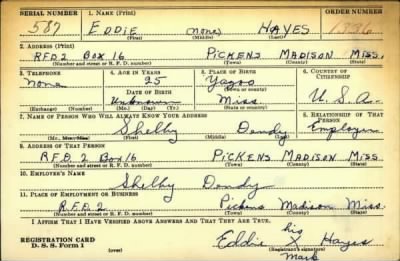 SERIAL NUMBER 1. NAME (Print) ORDER NUMBER
587 EDDIE (none) HAYES 1336
(First) (Middle) (Last)
2. ADDRESS (Print)
RFD 2 BOX 16 PICKENS MADISON MISS.
(Number and street or R. F. D. number) (Town) (County) (State)
3. TELEPHONE 4. AGE IN YEARS 5. PLACE OF BIRTH 6. COUNTRY OF CITIZENSHIP
none 25 Yazoo
DATE OF BIRTH (Town or county)
Unknown Miss U.S.A.
(Exchange) (Number) (Mo.) (Day) (Yr.) (State or country)
7. NAME OF PERSON WHO WILL ALWAYS KNOW YOUR ADDRESS 8. RELATIONSHIP OF THAT PERSON
Shelby Dendy Employer
(Mr., Mrs., Miss) (First) (Middle) (Last)
9. ADDRESS OF THAT PERSON
R.F.D. 2 Box 16 PICKENS MADISON MISS
(Number and street or R. F. D. number) (Town) (County) (State)
10. EMPLOYER'S NAME
Shelby Dendy
11. PLACE OF EMPLOYMENT OR BUSINESS
R.F.D. 2 Pickens Madison Miss.
(Number and street or R. F. D. number) (Town) (County) (State)
I AFFIRM THAT I HAVE VERIFIED ABOVE ANSWERS AND THAT THEY ARE TRUE.
REGISTRATION CARD
D. S. S. Form 1 (over)
his
Eddie X Hayes
(Registrant's signature)
Mark